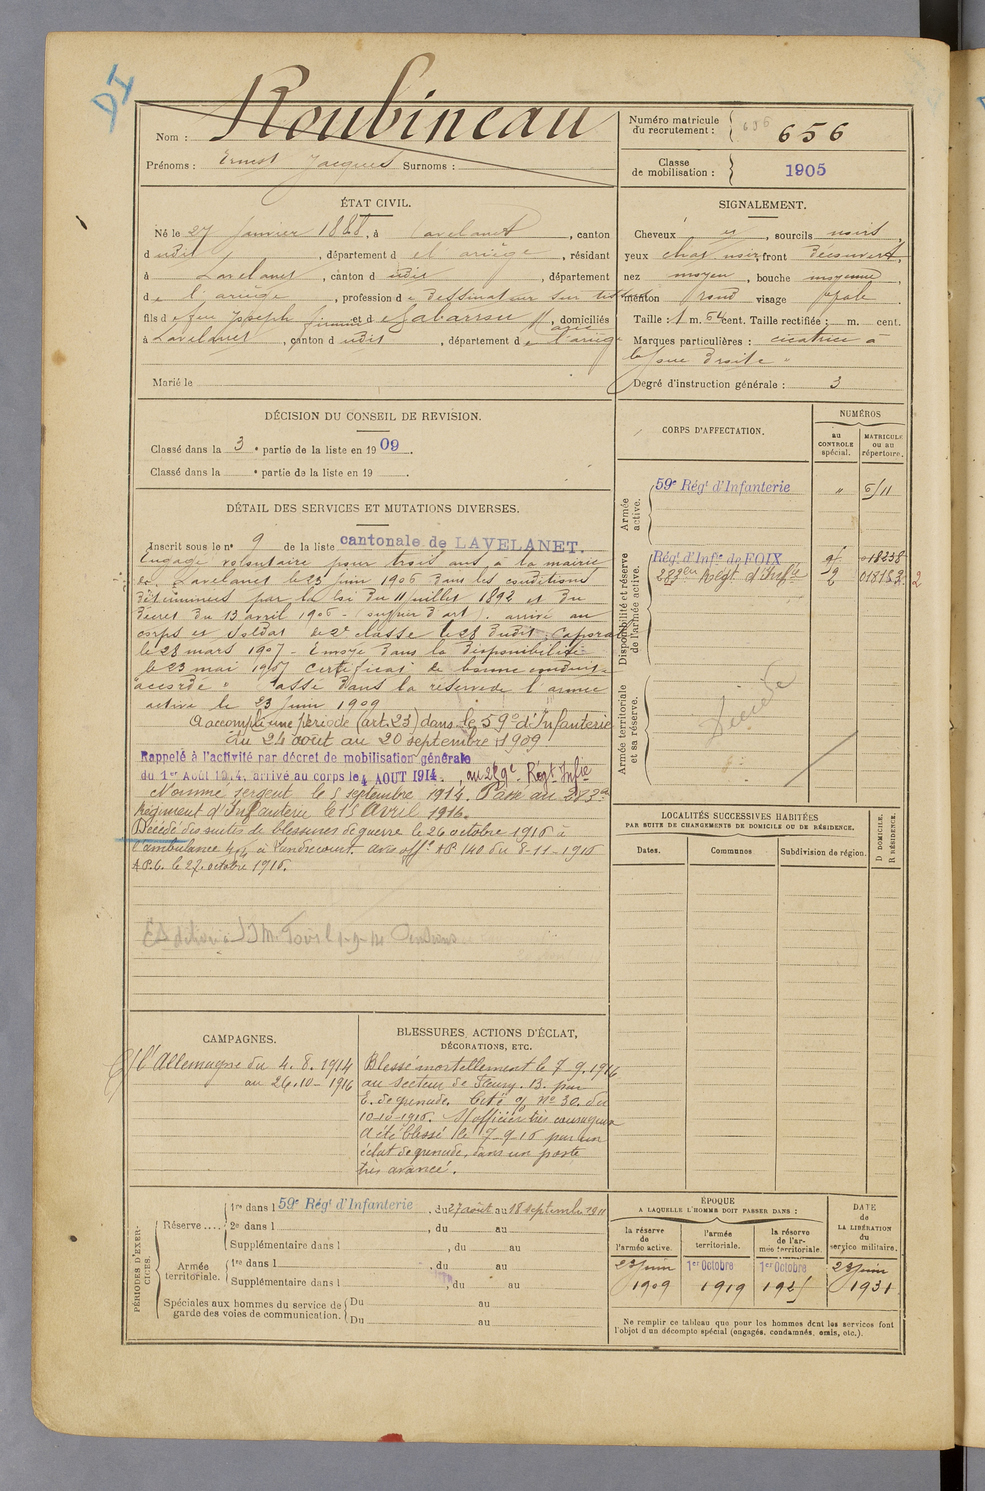 DI
Nom : Roubineau
Prénoms : Ernest Jacques Surnoms :
Numéro matricule du recrutement : 656
Classe de mobilisation : 1905
ÉTAT CIVIL.
Né le 27 Janvier 1888, à Lavelanet, canton
dudit, département de l'ariège, résidant
à Lavelanet, canton dudit, département
de l'ariège, profession de dessinateur sur tissus
fils de feu Joseph Firmin et de Gabarrou Marie, domiciliés
à Lavelanet, canton dudit, département de l'ariège
Marié le
SIGNALEMENT.
Cheveux et, sourcils noirs
yeux chat. noir, front découvert,
nez moyen, bouche moyenne
menton rond visage ovale
Taille : 1 m. 64 cent. Taille rectifiée : m. cent.
Marques particulières : cicatrice à
la joue droite "
Degré d'instruction générale : 3
DÉCISION DU CONSEIL DE REVISION.
Classé dans la 3e partie de la liste en 1909.
Classé dans la e partie de la liste en 19 .
DÉTAIL DES SERVICES ET MUTATIONS DIVERSES.
Inscrit sous le n° 9 de la liste cantonale de LAVELANET.
Engagé volontaire pour trois ans, à la mairie
de Lavelanet le 23 Juin 1906 dans les conditions
déterminées par la loi du 11 juillet 1892 et du
décret du 13 avril 1906 - arrivé au
corps et soldat de 2e classe le 28 dudit. Caporal
le 28 mars 1907 - Envoyé dans la disponibilité
le 23 mai 1907 Certificat de bonne conduite
accordé " Passé dans la réserve de l'armée
active le 23 Juin 1909
A accompli une période (art. 23) dans le 59e d'Infanterie
du 24 août au 20 septembre 1909.
Rappelé à l'activité par décret de mobilisation générale
du 1er Août 1914, arrivé au corps le 4 AOUT 1914. au Régt Infie
Nommé sergent le 5 septembre 1914. Passé au 283e
Régiment d'Infanterie le 15 Avril 1916.
Décédé des suites de blessures de guerre le 26 octobre 1916 à
l'ambulance à Landrecourt. avis offel A.P. 140 du 8-11-1916
A.P.6. le 27 octobre 1916.
CORPS D'AFFECTATION.
NUMÉROS
au CONTROLE spécial.
MATRICULE ou au répertoire.
Armée active.
59e Régt d'Infanterie " 5/11
Disponibilité et réserve de l'armée active.
Régt d'Infie de FOIX 018238
283eme Régt d'Infie 018183 2
Armée territoriale et sa réserve.
Décédé
LOCALITÉS SUCCESSIVES HABITÉES
PAR SUITE DE CHANGEMENTS DE DOMICILE OU DE RÉSIDENCE.
Dates.
Communes
Subdivision de région.
D DOMICILE.
R RÉSIDENCE.
CAMPAGNES.
C/ l'Allemagne du 4.8.1914
au 26.10-1916
BLESSURES, ACTIONS D'ÉCLAT,
DÉCORATIONS, ETC.
Blessé mortellement le 7-9.1916
au secteur de Fleury. 13. par
E. de grenade. Cité N° 30. du
10-10-1916. S/officier très courageux
a été blessé le 7-9-16 par un
éclat de grenade, dans un poste
très avancé.
PÉRIODES D'EXERCICES.
Réserve .... 1re dans l 59e Régt d'Infanterie, du 27 août au 18 septembre 1911
2e dans l , du au
Supplémentaire dans l , du au
Armée territoriale. 1re dans l , du au
Supplémentaire dans l , du au
Spéciales aux hommes du service de garde des voies de communication. Du au
Du au
ÉPOQUE
A LAQUELLE L'HOMME DOIT PASSER DANS :
la réserve de l'armée active.
l'armée territoriale.
la réserve de l'armée territoriale.
DATE DE LA LIBÉRATION du service militaire.
23 juin 1909
1er Octobre 1919
1er Octobre 1925
23 juin 1931
Ne remplir ce tableau que pour les hommes dont les services font
l'objet d'un décompte spécial (engagés, condamnés, omis, etc.).